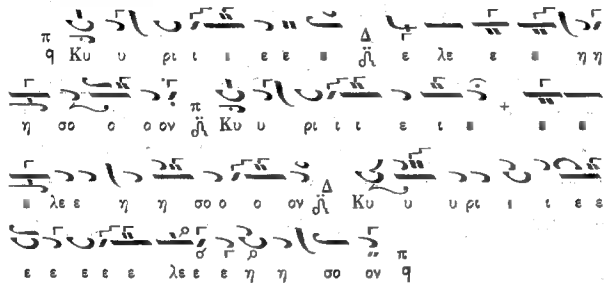 π q Κυ υ ρι ι ι ε ε ε Δ ε λε ε ε η η
η σο ο ο ον π Κυ υ ρι ι ι ε ι ε + ε ε
ε λε ε η η σο ο ο ον Δ Κυ υ υ ρι ι ι ε ε
ε ε ε ε ε λε ε ε η η σο ον π q